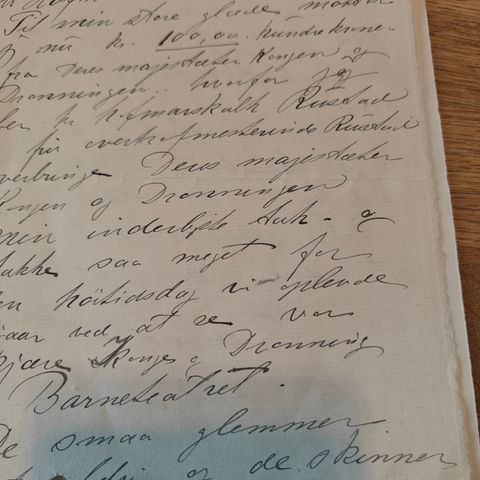 Til min store glæde modtog
nu kr. 100,00. hundre kroner
fra Deres majestæter Kongen og
Dronningen. hvorfor jeg
ber hr hofmarskalk Rustad
fru overhofmesterinde Rustad
Deres majestæter
Kongen og Dronningen
min inderligste tak - og
takke saa meget for
den höitidsdag vi oplevde
iaar ved at se vor
kjære Konge og Dronning
Barneteatret.
De smaa glemmer
og de skinner